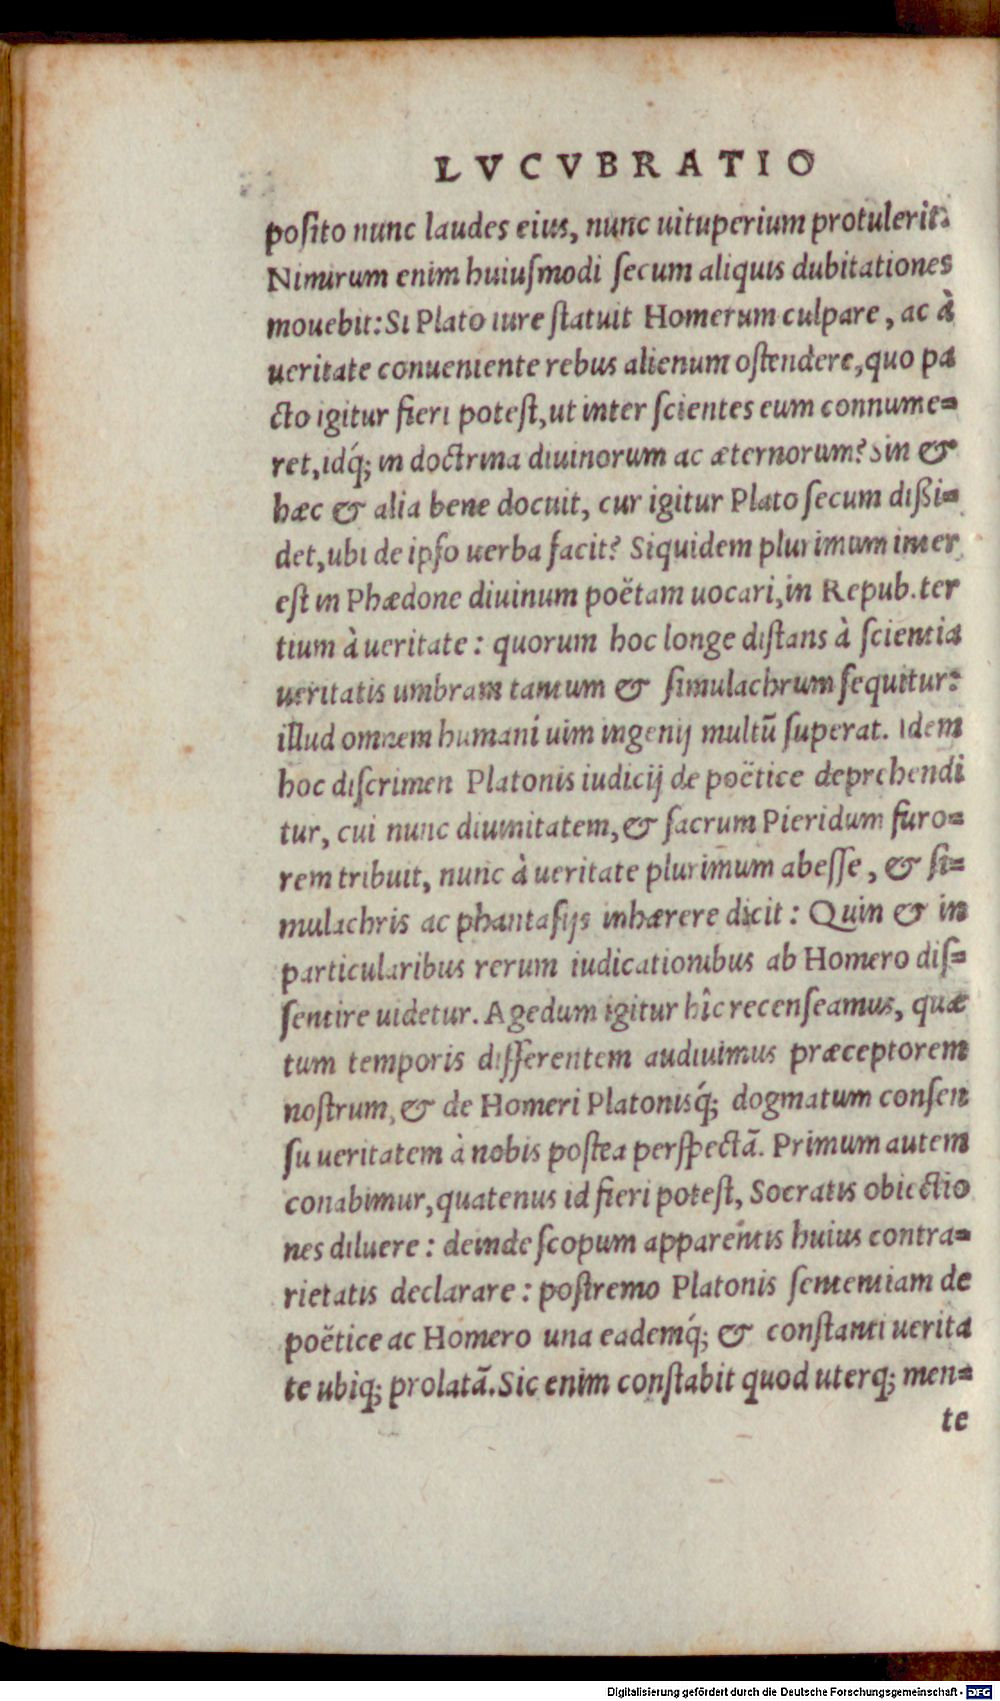 LVCVBRATIO
posito nunc laudes eius, nunc uituperium protulerit.
Nimirum enim huiuſmodi ſecum aliquis dubitationes
mouebit: Si Plato iure ſtatuit Homerum culpare, ac à
ueritate conueniente rebus alienum oſtendere, quo pa
cto igitur fieri poteſt, ut inter ſcientes eum connume-
ret, idq́; in doctrina diuinorum ac æternorum? Sin &
hæc & alia bene docuit, cur igitur Plato ſecum dißi-
det, ubi de ipſo uerba facit? Siquidem plurimum inter
eſt in Phædone diuinum poëtam uocari, in Repub. ter
tium à ueritate: quorum hoc longe diſtans à ſcientia
ueritatis umbram tantum & ſimulachrum ſequitur:
illud omnem humani uim ingenij multũ ſuperat. Idem
hoc diſcrimen Platonis iudicij de poëtice deprehendi
tur, cui nunc diuinitatem, & ſacrum Pieridum furo-
rem tribuit, nunc à ueritate plurimum abeſſe, & ſi-
mulachris ac phantaſijs inhærere dicit: Quin & in
particularibus rerum iudicationibus ab Homero diſ-
ſentire uidetur. Agedum igitur hîc recenſeamus, quæ
tum temporis diſſerentem audiuimus præceptorem
noſtrum, & de Homeri Platonisq́; dogmatum conſen
ſu ueritatem à nobis poſtea perſpectã. Primum autem
conabimur, quatenus id fieri poteſt, Socratis obiectio
nes diluere: deinde ſcopum apparentis huius contra-
rietatis declarare: poſtremo Platonis ſententiam de
poëtice ac Homero una eademq́; & conſtanti uerita
te ubiq; prolatã. Sic enim conſtabit quod uterq; men-
te
Digitalisierung gefördert durch die Deutsche Forschungsgemeinschaft - DFG